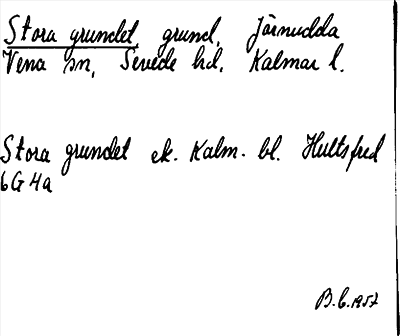 Stora grundet, grund, Järnudda
Vena sn, Sevede hd, Kalmar l.
Stora grundet ek. Kalm. bl. Hultsfred
6G 4a
B.L. 1957